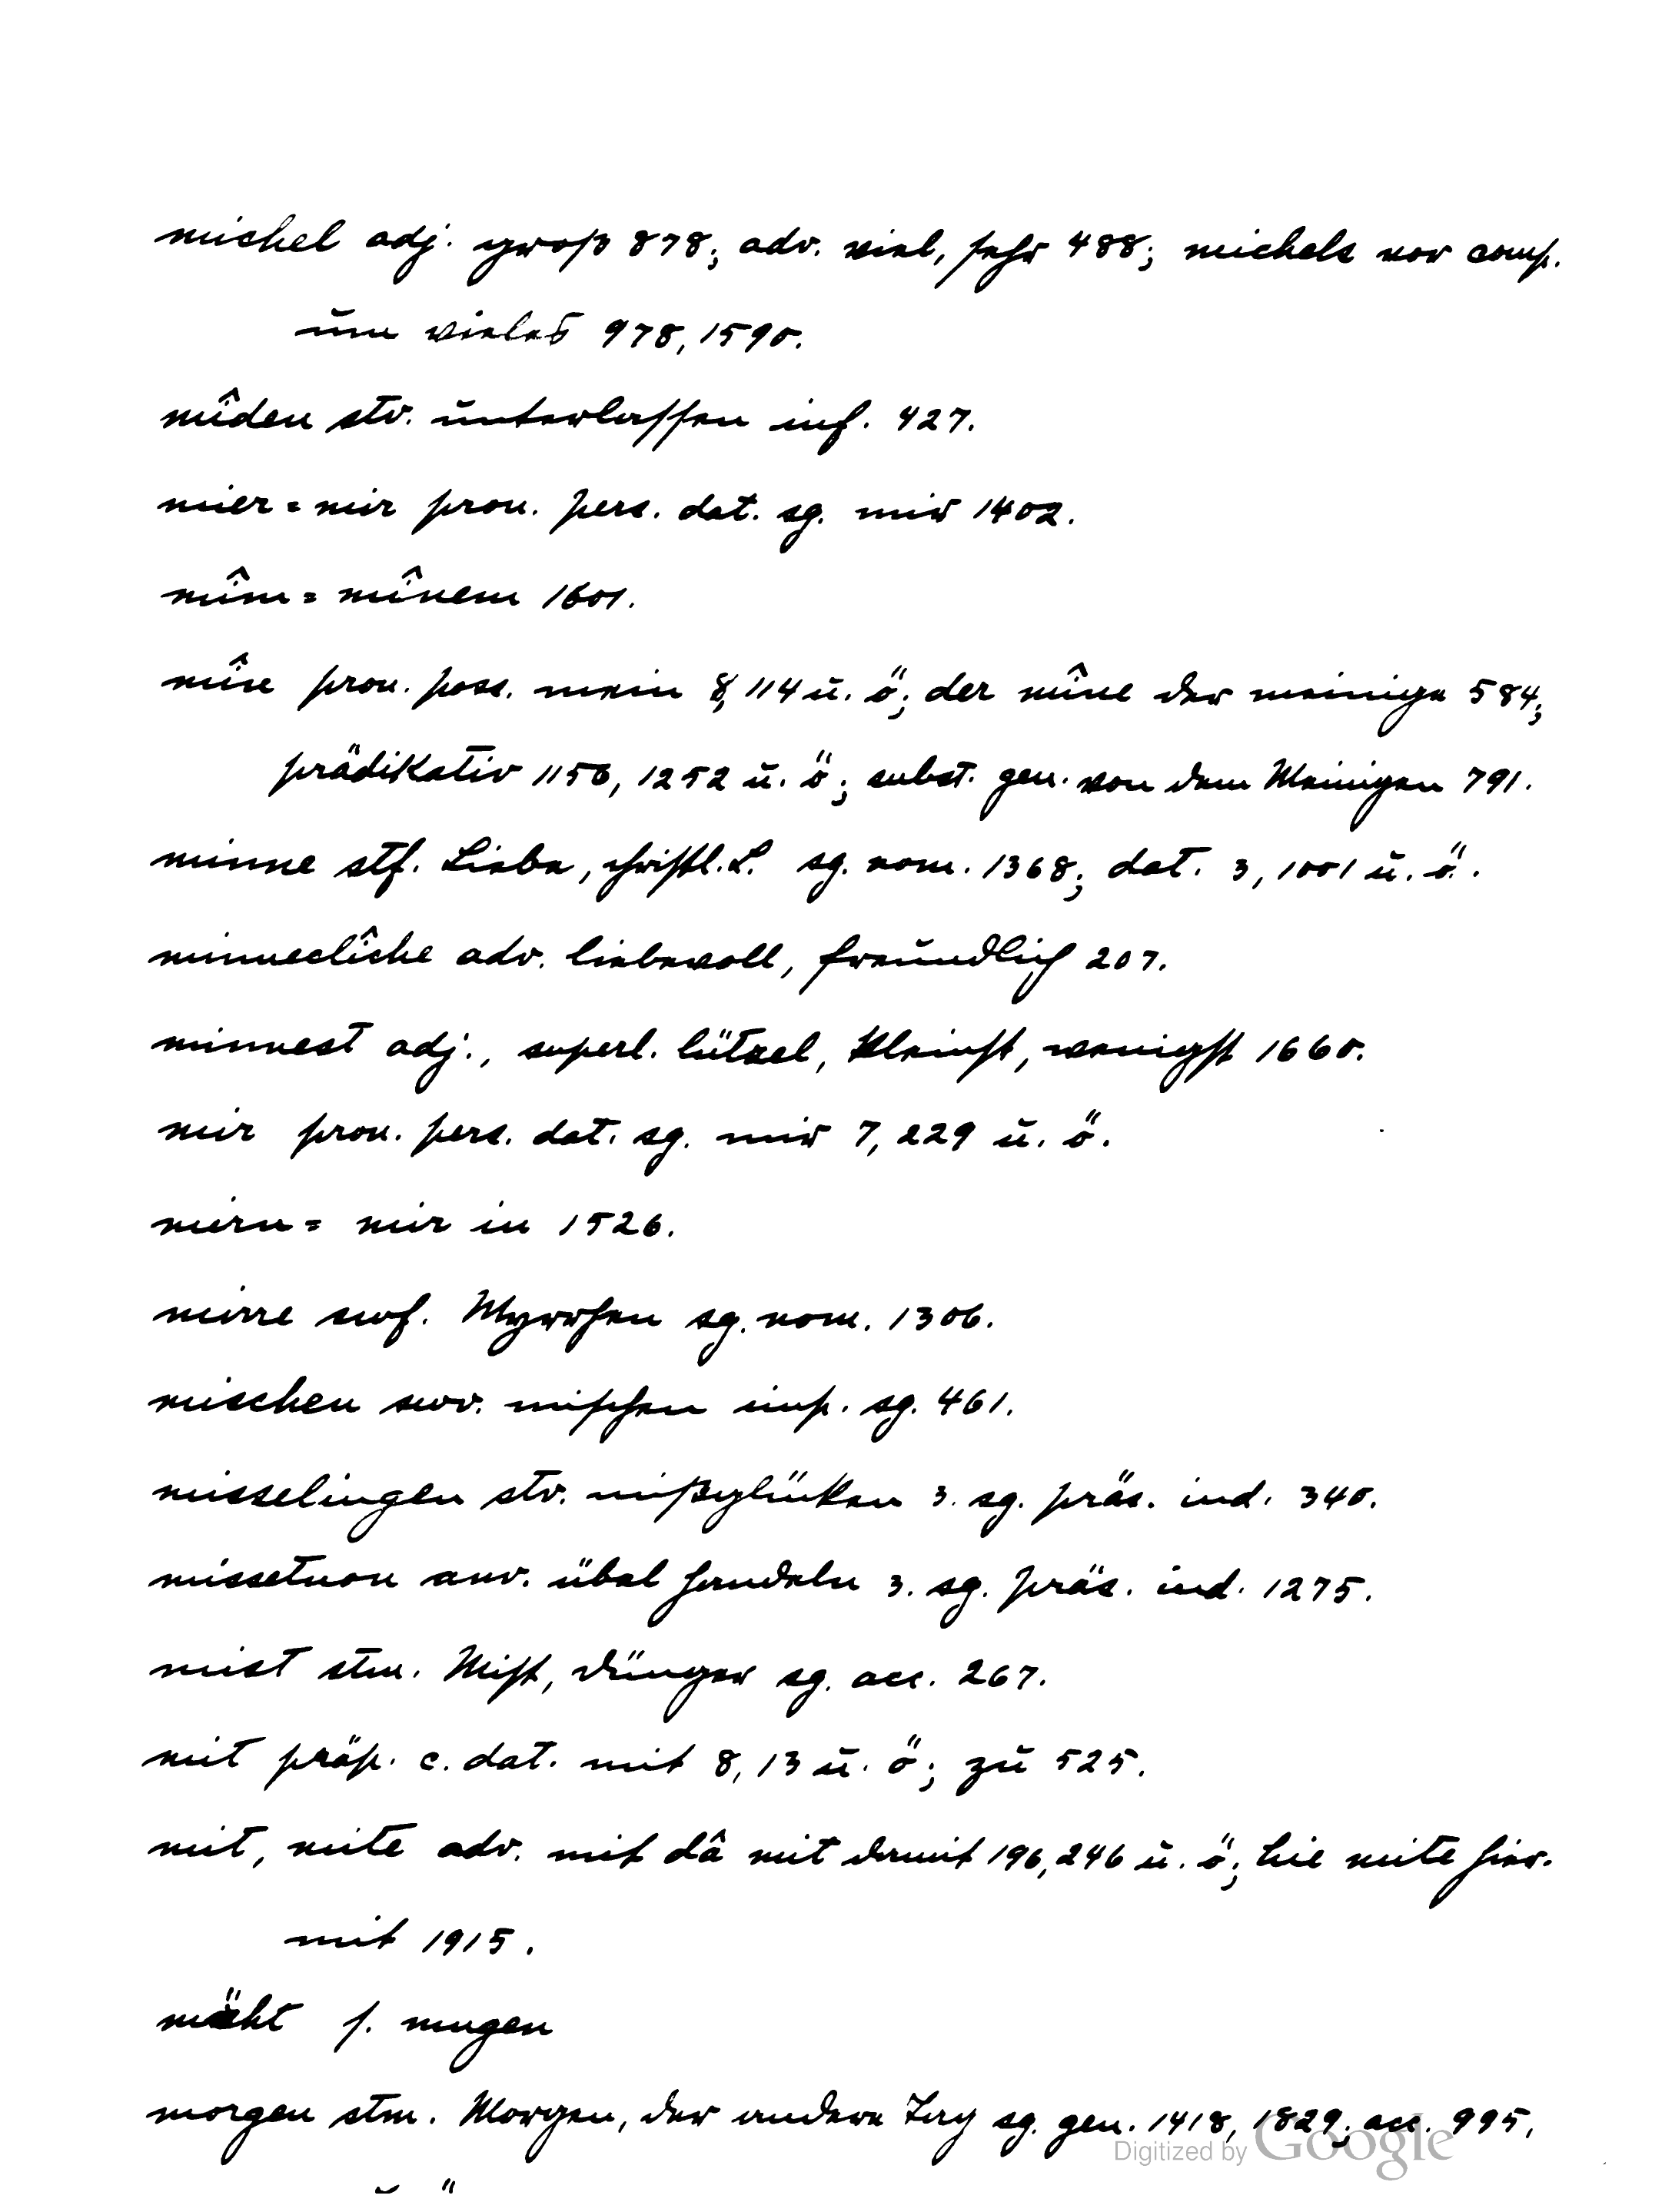 michel adj. groß 878; adv. viel, sehr 488; michels vor comp.
um vieles 978, 1590.
mîden stv. unterlassen inf. 427.
mier = mir pron. pers. dat. sg. mir 1402.
mîm = mînem 1601.
mîn pron. poss. mein 8, 114 u. ö; der mîne der meinige 584;
prädikativ 1156, 1252 u. ö; subst. gen. von dem Meinigen 791.
minne stf. Liebe, christl. L. sg. nom. 1368; dat. 3, 1001 u. ö.
minneclîche adv. liebevoll, freundlich 207.
minnest adj., superl. lützel, kleinst, wenigst 1660.
mir pron. pers. dat. sg. mir 7, 229 u. ö.
mirn = mir in 1526.
mirre swf. Myrrhen sg. nom. 1306.
mischen swv. mischen imp. sg. 461.
misselingen stv. mißglücken 3. sg. präs. ind. 340.
missetuon anv. übel handeln 3. sg. präs. ind. 1275.
mist stm. Mist, Dünger sg. acc. 267.
mit präp. c. dat. mit 8, 13 u. ö; zu 525.
mit, mite adv. mit dâ mit damit 196, 246 u. ö; hie mite hier-
mit 1915.
möht s. mugen
morgen stm. Morgen, der andere Tag sg. gen. 1418, 1829; acc. 995,
Digitized by Google